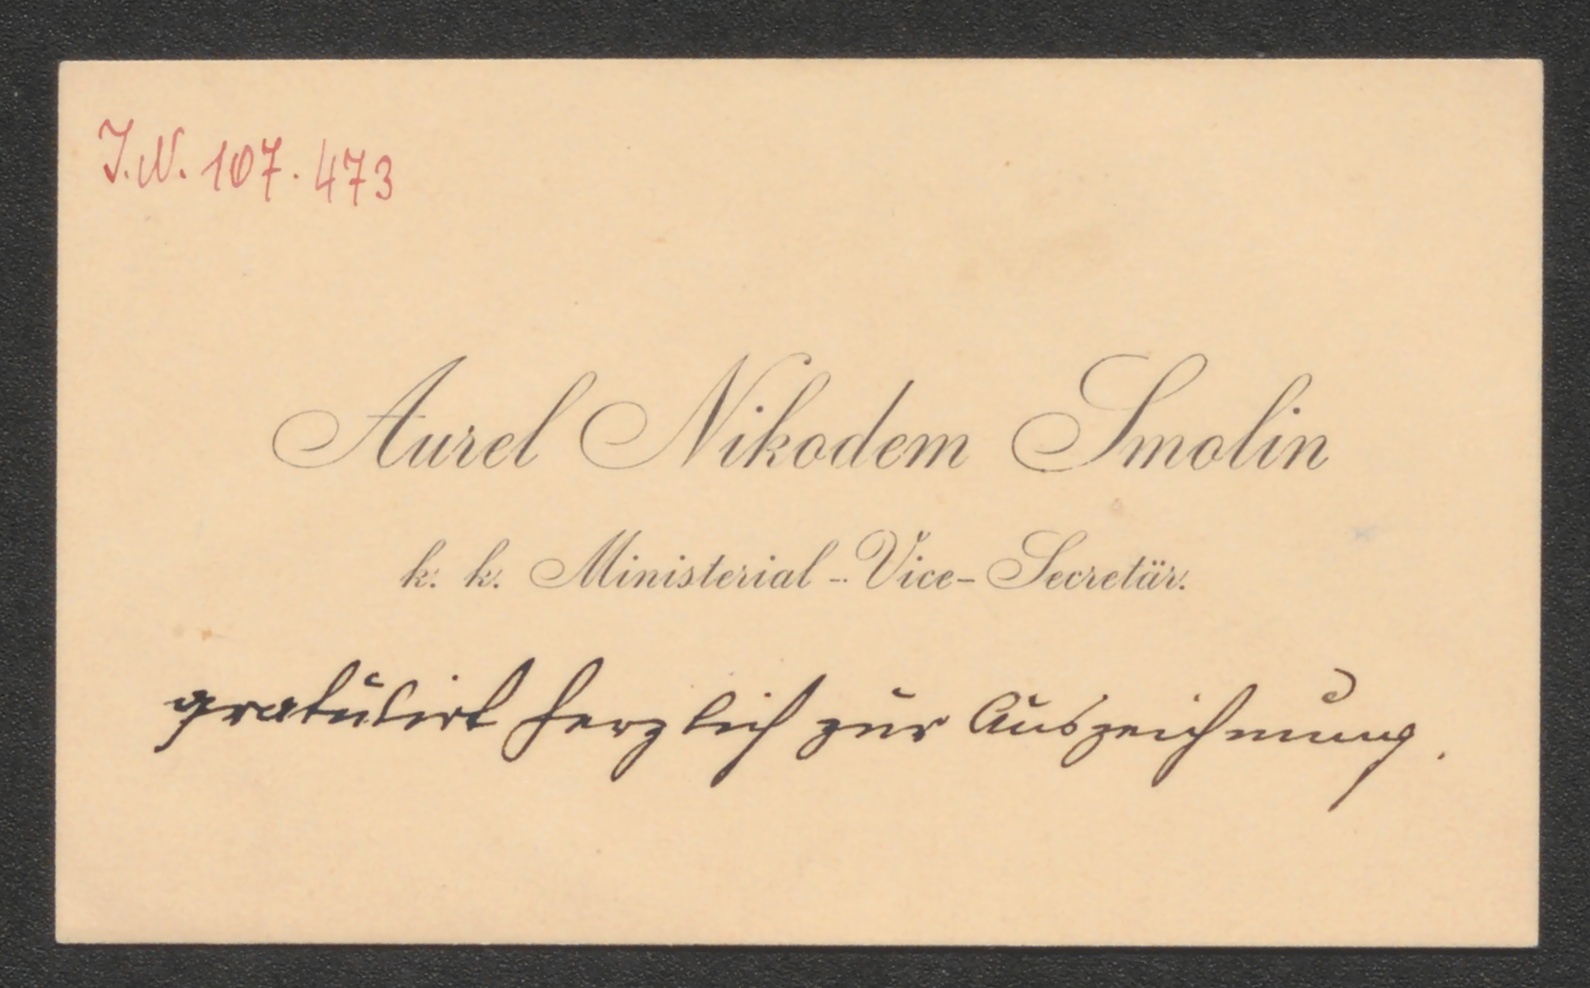 J.N. 107.473
Aurel Nikodem Smolin
k. k. Ministerial-Vice-Secretär.
gratulirt herzlich zur Auszeichnung.